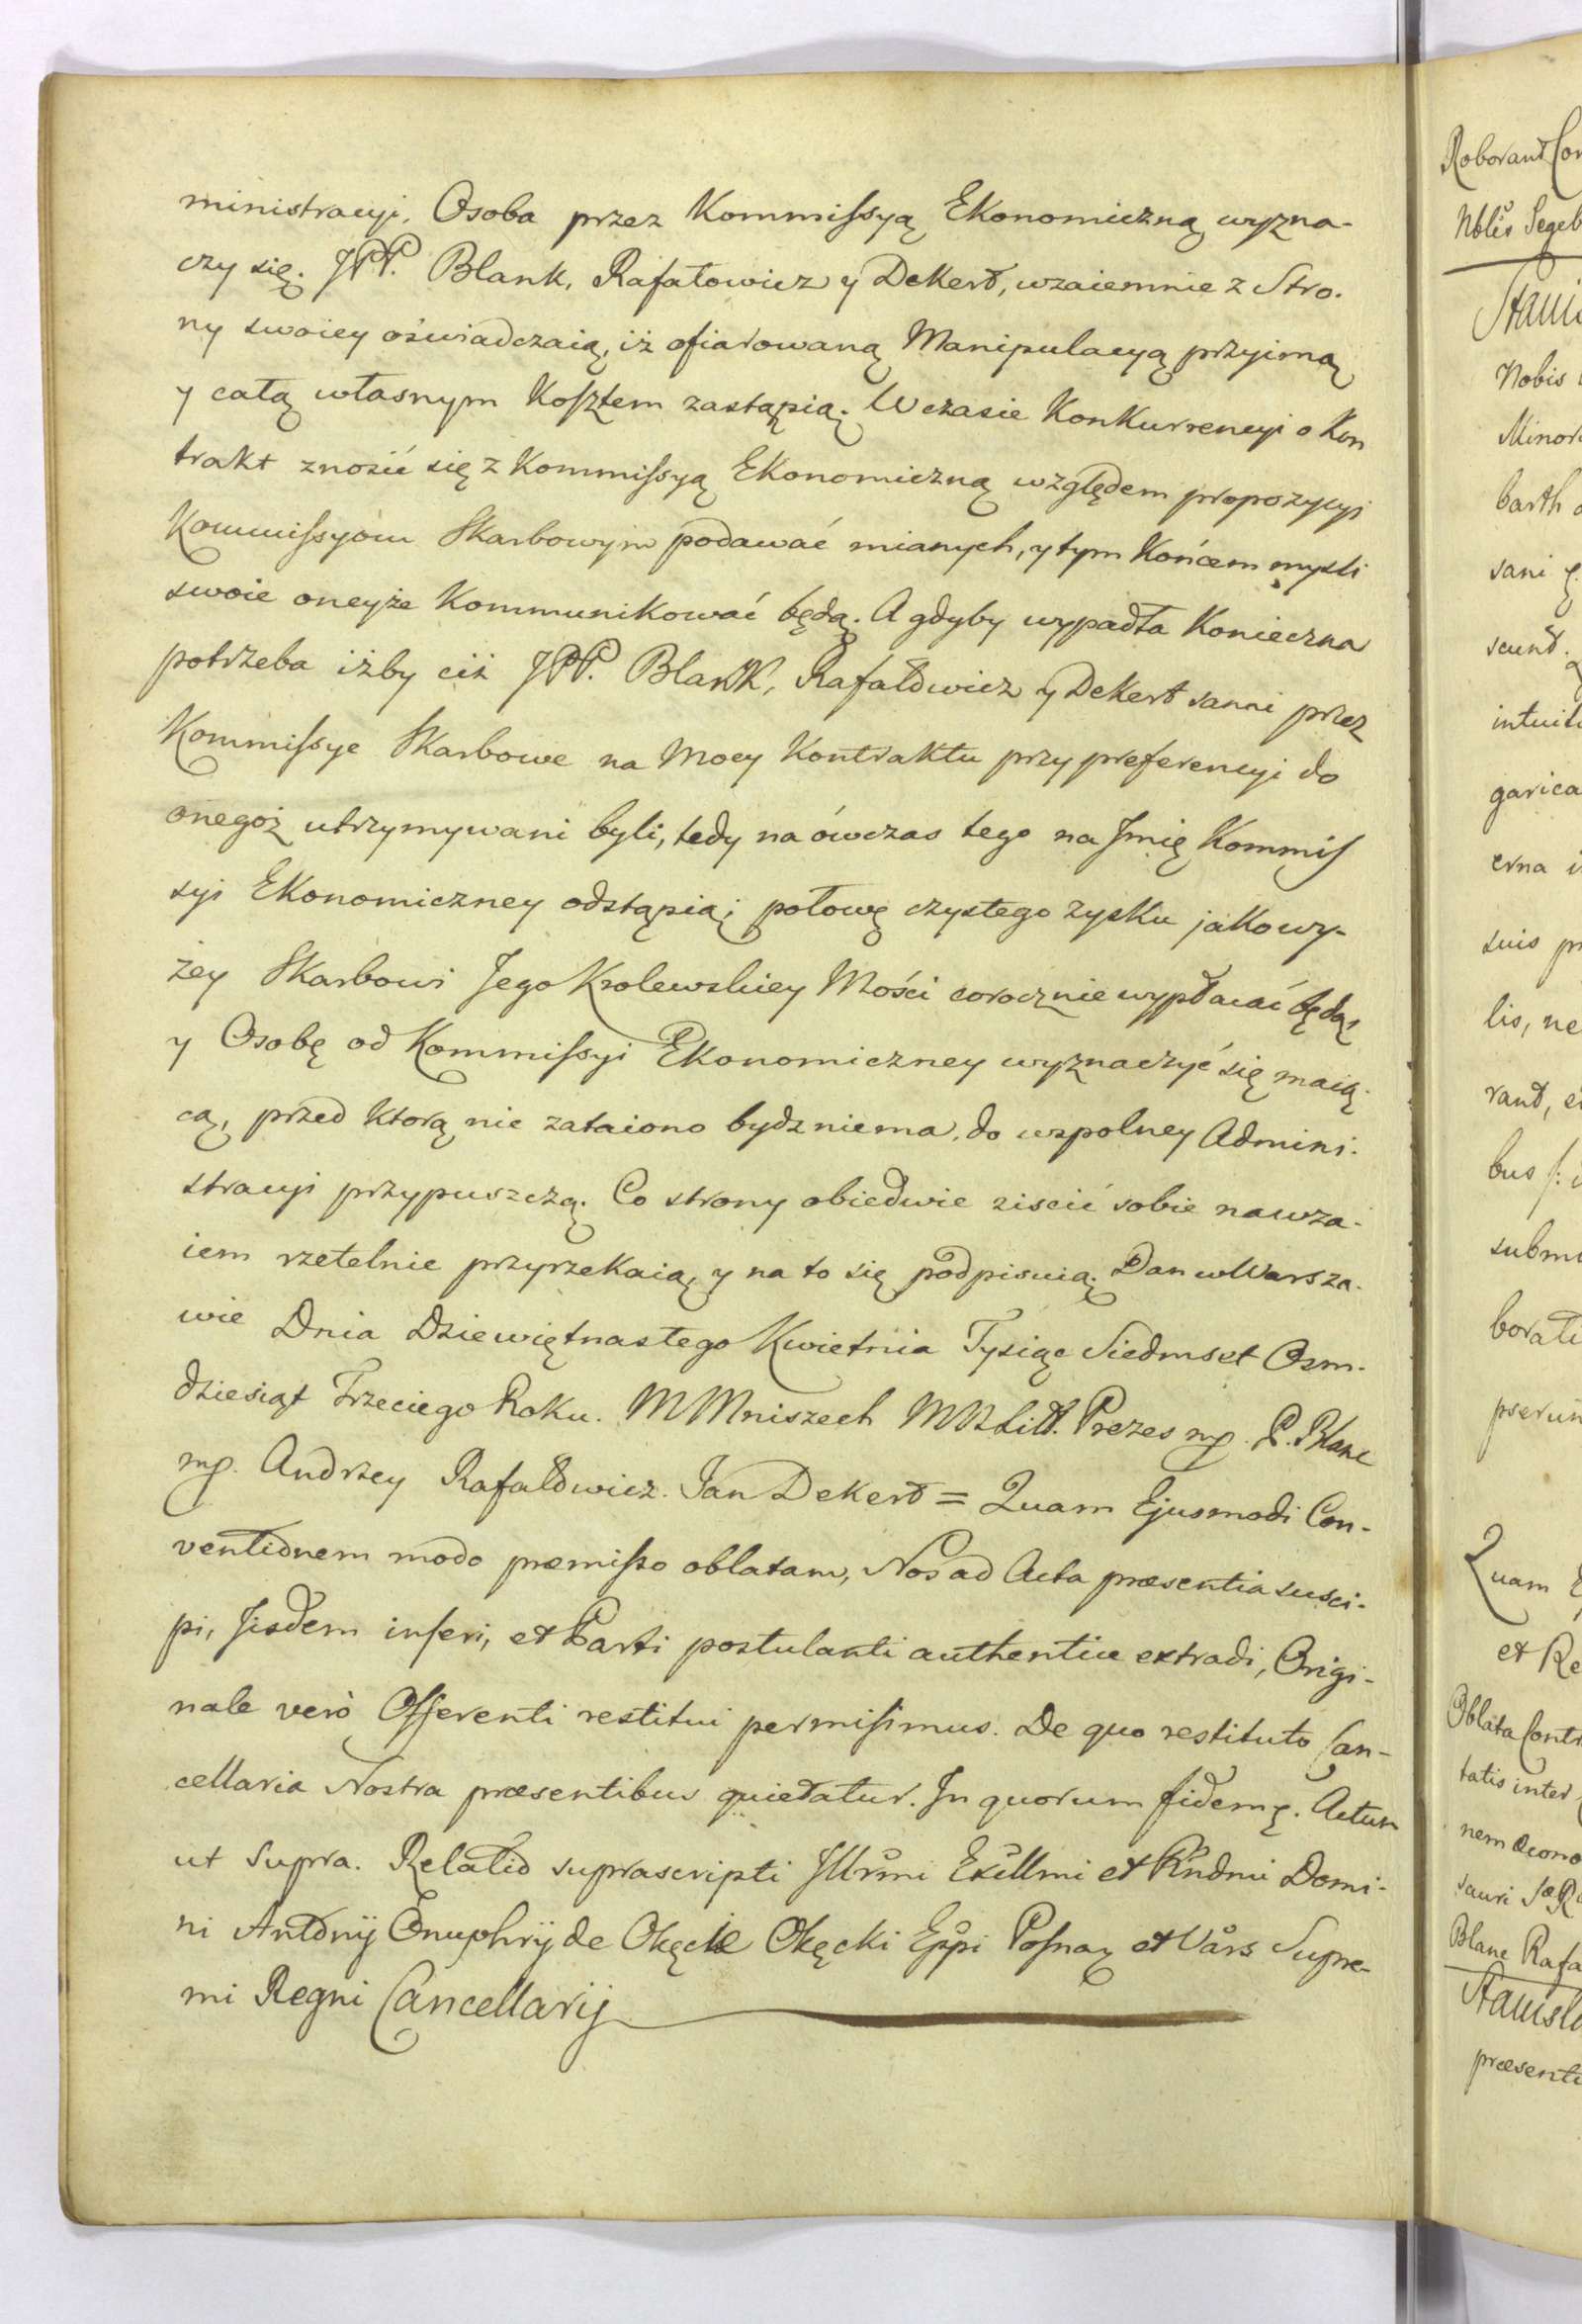 ministracyi. Osoba przez Kommissyą Ekonomiczną wyzna-
czy się. JPP. Blank, Rafałowicz y Dekert, wzaiemnie z Stro-
ny swoiey oświadczaią, iż ofiarowaną Manipulacyą przyimą
y całą własnym Kosztem zastąpią. W czasie Konkurrencyi o Kon
trakt znosić się z Kommissyą Ekonomiczną względem propozycyi
Kommissyom Skarbowym podawać mianych, y tym Końcem mysli
swoie oneyże Kommunikować będą. A gdyby wypadła Konieczna
potrzeba iżby ciż JPP. Blank, Rafałowicz y Dekert sami przez
Kommissye Skarbowe na Mocy Kontraktu przy preferencyi do
onegoż utrzymywani byli, tedy na ówczas tego na Jmię Kommis
syi Ekonomiczney odstąpią; połowę czystego zysku jako wy-
żey Skarbowi Jego Krolewskiey Mości corocznie wypłacać będą,
y Osobę od Kommissyi Ekonomiczney wyznaczyć się maią-
cą, przed ktorą nic zataiono bydz niema, do wspolney Admini-
stracyi przypuszczą. Co strony obiedwie ziscić sobie nawza-
iem rzetelnie przyrzekaią, y na to się podpisuią. Dan w Warsza-
wie Dnia Dziewiętnastego Kwietnia Tysiąc Siedmset Osm-
dziesiąt Trzeciego Roku. M Mniszech MNLitt. Prezes mp. P. Blanc
mp. Andrzey Rafałowicz. Jan Dekert = Quam Ejusmodi Con-
ventionem modo præmisso oblatam, Nos ad Acta præsentia susci-
pi, Jisdem inseri, et Parti postulanti authentice extradi, Origi-
nale verò Offerenti restitui permisimus. De quo restituto Can-
cellaria Nostra præsentibus quietatur. In quorum fidem ę. Actum
ut Supra. Relatio suprascripti Jllrmi Exŭllmi et Rndmi Domi-
ni Antonij Onuphrij de Okęcie Okęcki Eppi Posnaŋ et Vars Supre-
mi Regni Cancellarij
Roborant Con
Nblis Segeb
Stani
Nobis
Minor
barth
sani
scunt.
intuit
garica
erna i
suis pr
lis, ne
rant, e
bus /: i
subm
borati
pserun
Quam E
et Re
Oblata Contr
tatis inter
nem Œcono
sauri S R
Blanc Rafa
Stanisl
præsenti